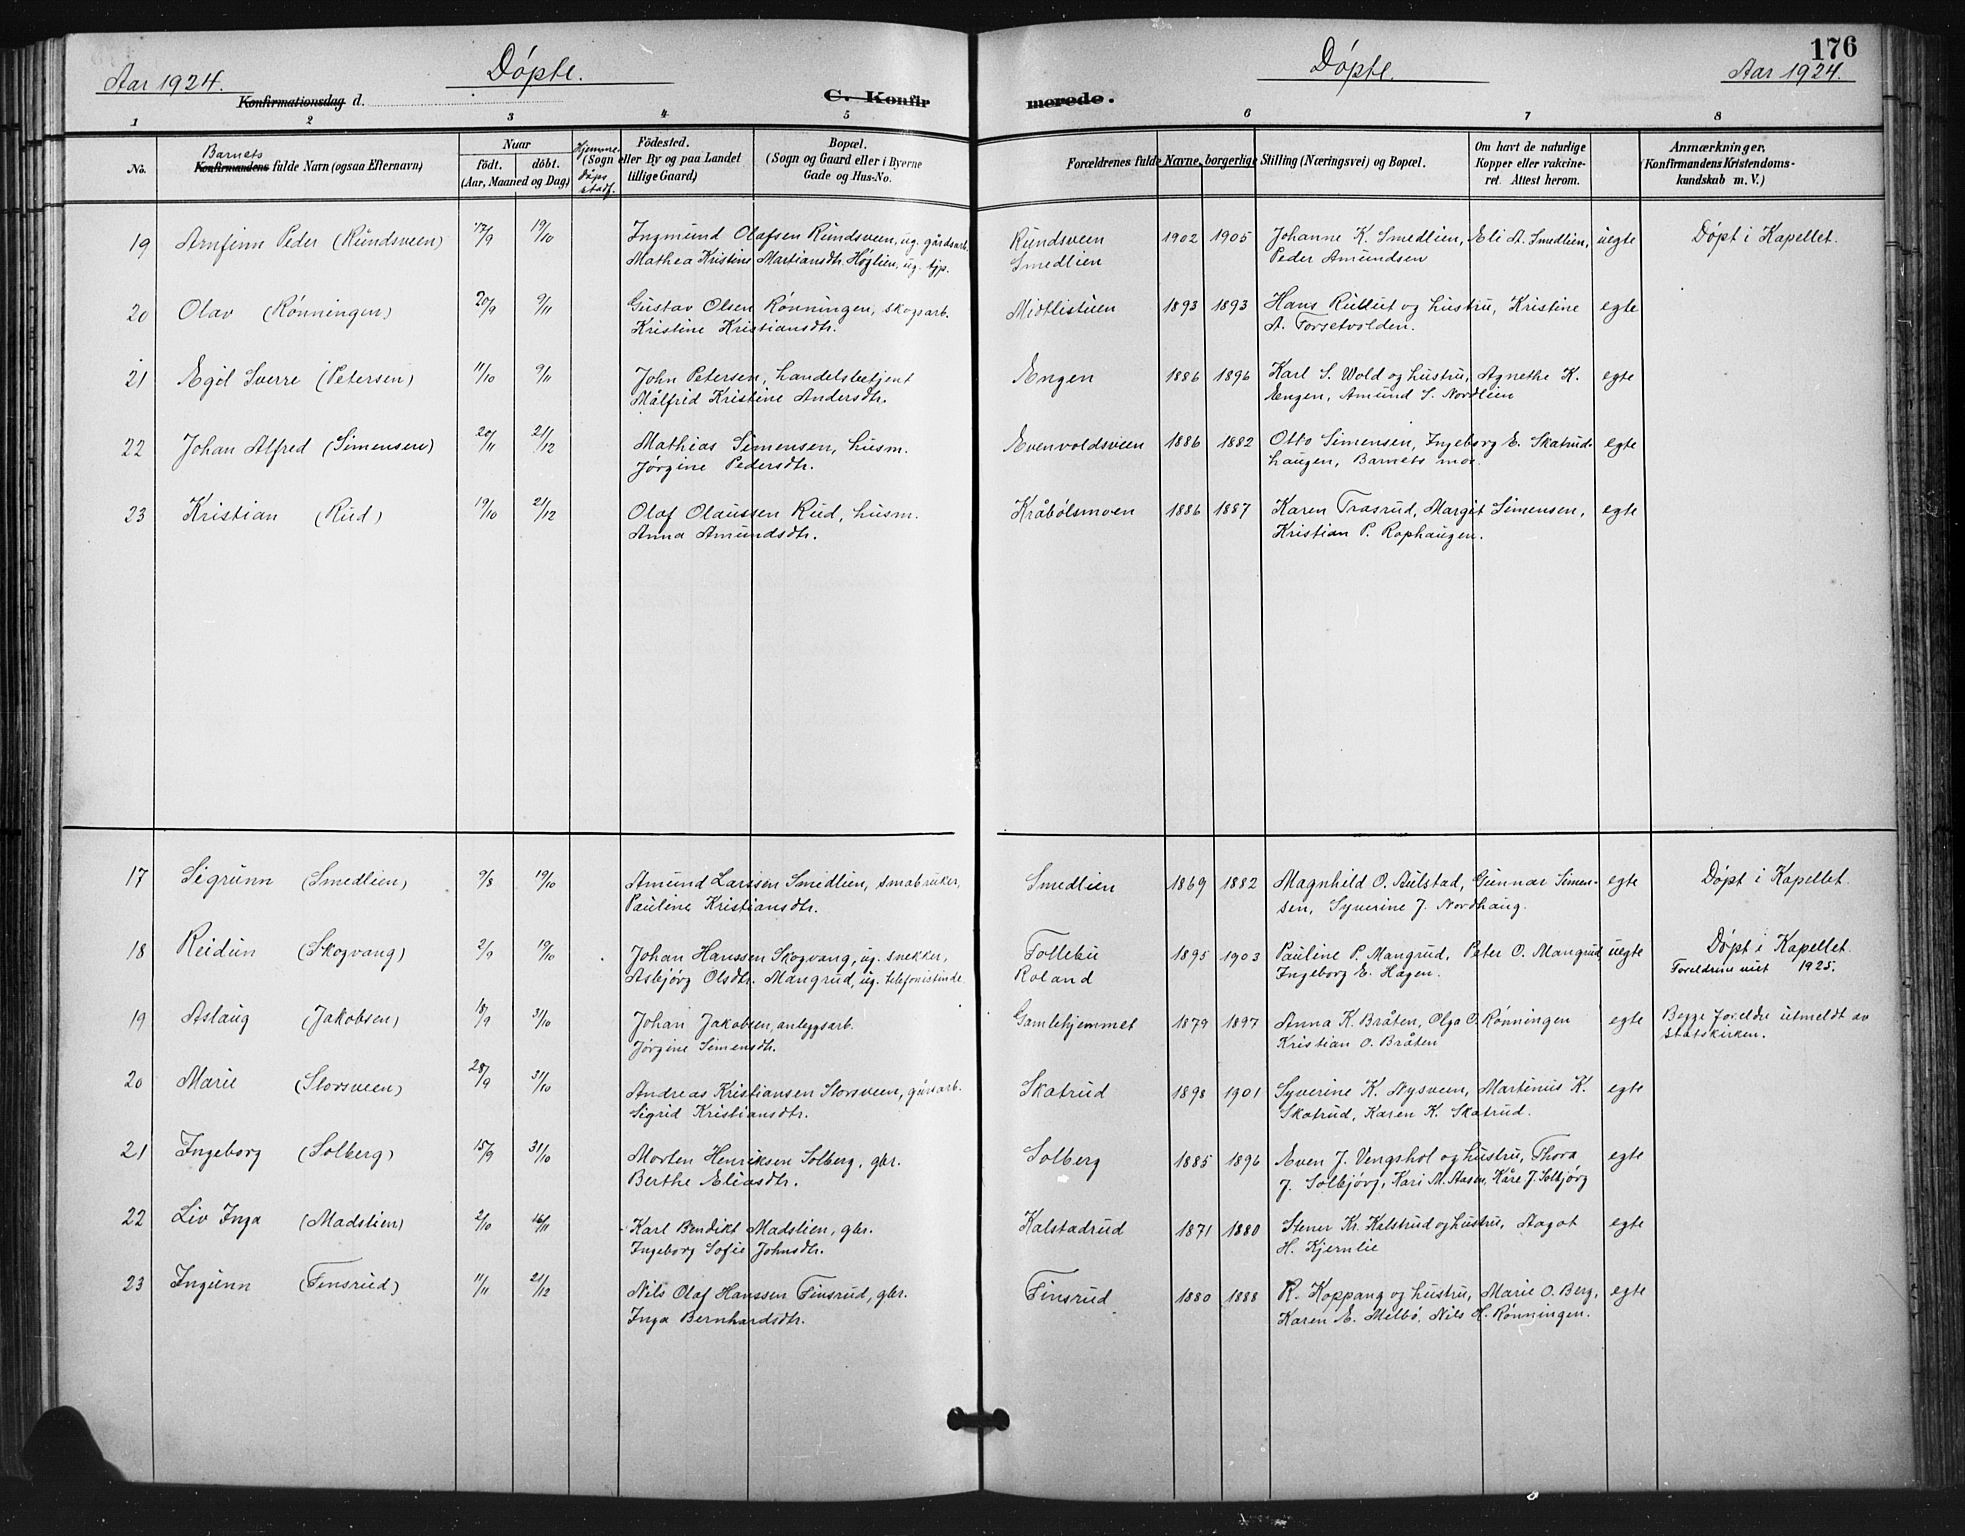 Aar 1924. Døpte. Døpte. 176
Aar 1924.
Konfirmationsdag d. C. Konfir merede.
1 2 3 4 5 6 7 8
No.
Barnets
Konfirmandens fulde Navn (ogsaa Efternavn)
Naar
födt. döbt.
(Aar, Maaned og Dag)
Hjemme
døpt
Födested.
(Sogn eller By og paa Landet
tillige Gaard)
Bopæl.
(Sogn og Gaard eller i Byerne
Gade og Hus-No.
Forældrenes fulde Navne, borgerlige Stilling (Næringsvei) og Bopæl.
Om havt de naturlige
Kopper eller vakcine-
ret. Attest herom.
Anmærkninger,
(Konfirmandens Kristendoms-
kundskab m. V.)
19 Arnfinn Peder (Rundsveen) 17/9 19/10 Ingmund Olafsen Rundsveen, ug. gårdsarb. Rundsveen 1902 1905 Johanne K. Smedlien, Eli A. Smedlien, uegte Døpt i Kapellet.
Mathea Kristine Martiansdtr. Høglien, ug. tjp. Smedlien Peder Amundsen
20 Olav (Rønningen) 20/9 9/11 Gustav Olsen Rønningen, skogsarb. Midtlistuen 1893 1893 Hans Ruttut og hustru, Kristine egte
Kristine Kristiansdtr. A. Forsetvolden.
21 Egil Sverre (Petersen) 11/10 9/11 John Petersen, handelsbetjent Engen 1886 1896 Karl S. Wold og hustru, Agnethe K. egte
Målfrid Kristine Andersdtr. Engen, Amund S. Nordlien
22 Johan Alfred (Simensen) 20/11 21/12 Mathias Simensen, husm. Evenvoldsveen 1886 1882 Otto Simensen, Ingeborg E. Skatrud- egte
Jørgine Pedersdtr. haugen, Barnets mor.
23 Kristian (Rud) 19/10 21/12 Olaf Olaussen Rud, husm. Kråbølsmoen 1886 1887 Karen Trasrud, Margit Simensen, egte
Anna Amundsdtr. Kristian P. Rophaugen.
17 Sigrunn (Smedlien) 9/8 19/10 Amund Larssen Smedlien, småbruker, Smedlien 1869 1882 Magnhild O. Aulstad, Gunnar Simen- egte Døpt i Kapellet.
Pauline Kristiansdtr. sen, Syverine J. Nordhaug.
18 Reidun (Skogvang) 2/9 19/10 Johan Hanssen Skogvang, ug. snekker, Follebu 1895 1903 Pauline P. Mangrud, Peter O. Mangrud uegte Døpt i Kapellet.
Asbjørg Olsdtr. Mangrud, ug. telefonistinde. Roland Ingeborg E. Hagen. Foreldrene viet 1925.
19 Aslaug (Jakobsen) 18/9 31/10 Johan Jakobsen, anleggsarb. Gamlehjemmet 1879 1897 Anna K. Bråten, Olga O. Rønningen egte Begge foreldre utmeldt av
Jørgine Simensdtr. Kristian O. Bråten statskirken.
20 Marie (Storsveen) 28/9 31/10 Andreas Kristiansen Storsveen, gårsarb. Skatrud 1898 1901 Syverine K. Nysveen, Martinus K. egte
Sigrid Kristiansdtr. Skatrud, Karen K. Skatrud.
21 Ingeborg (Solberg) 15/9 31/10 Morten Henriksen Solberg, gbr. Solberg 1885 1896 Even J. Vengshol og hustru, Thora egte
Berthe Eliasdtr. J. Solbjørg, Kari M. Aasen, Kåre J. Solbjørg
22 Liv Inga (Madslien) 2/10 16/11 Karl Bendikt Madslien, gbr. Kalstadrud 1871 1880 Stener Kr. Kalstrud og hustru, Aagot egte
Ingeborg Sofie Johnsdtr. H. Kjernlie
23 Ingunn (Finsrud) 11/11 21/12 Nils Olaf Hanssen Finsrud, gbr. Finsrud 1880 1888 R. Koppang og hustru, Marie O. Berg, egte
Inga Bernhardsdtr. Karen E. Melbø, Nils H. Rønningen.